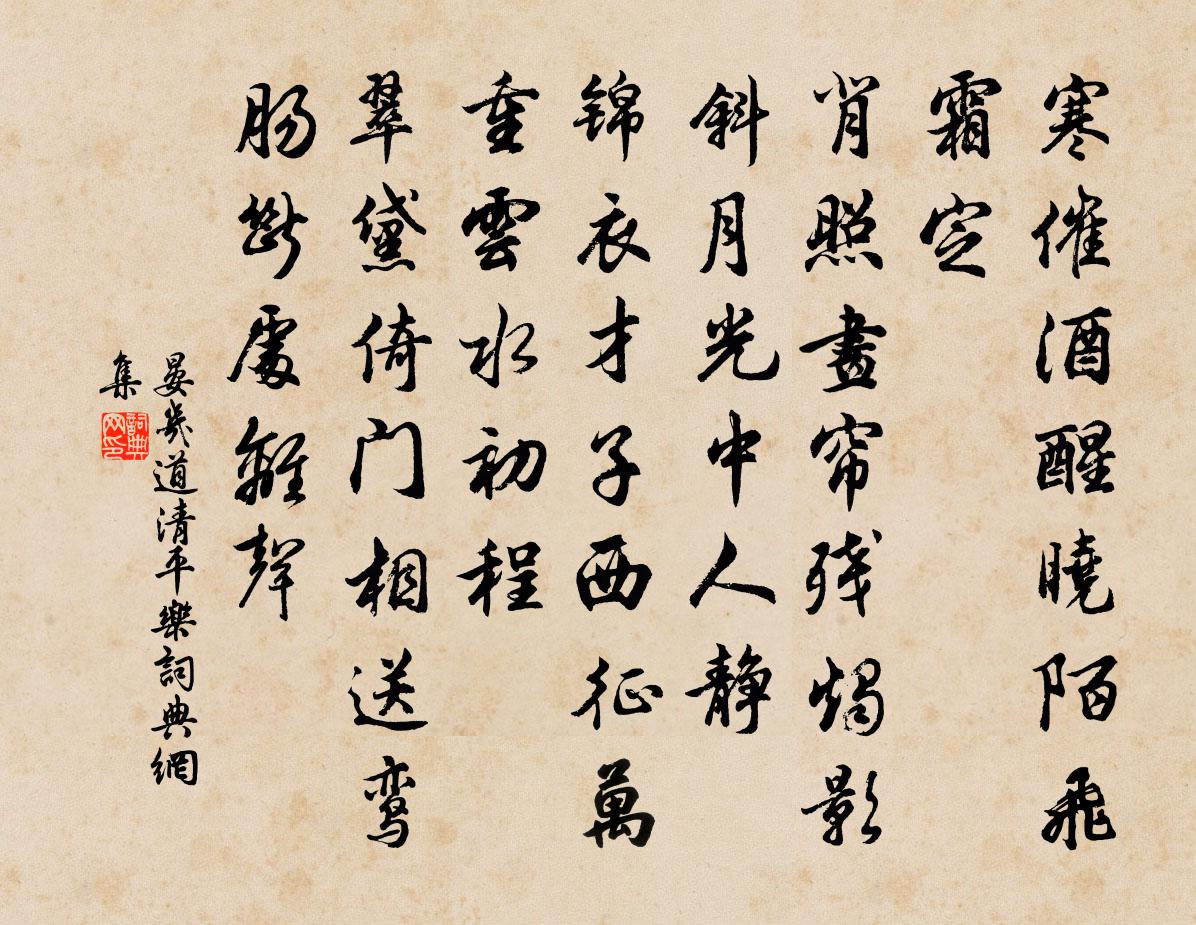 寒催酒醒曉陌飛
霜定
背照畫帘残燭影
斜月光中人静
锦衣才子西征萬
重雲水初程
翠黛倚门相送鸾
腸斷處離聲
晏幾道清平樂詞典網
集
詞典
网印